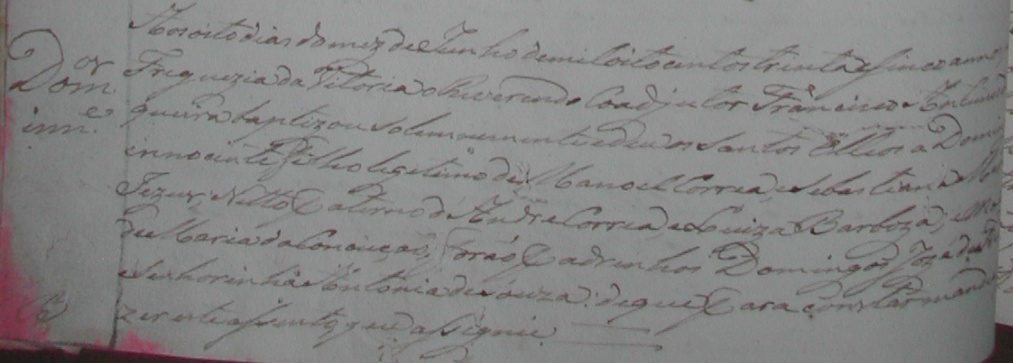 Aos oito dias do mez de Junho de mil oito centos trinta e sinco ann
Dom.os Freguezia da Vitoria o Reverendo Coadjutor Francisco Antunes
inn.e queira baptizou solemnemente e deu os Santos Olios a Dom
ennocente Filho legitimo de Manoel Correa, e Sebastiana M
Jezus, Netto Paterno de Andre Correa, e Luiza Barboza, e
de Maria da Conceição, forão Padrinhos Domingos Joze de
e Senhorinha Antonia de Souza: de que para constar mand
zer este assento que assignei